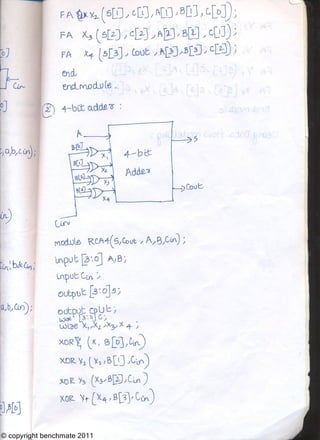 FA x₂ (S[1], C[1], A[1], B[1], C[0]);
FA x₃ (S[2], C[2], A[2], B[2], C[1]);
FA x₄ (S[3], Cout, A[3], B[3], C[2]);
end
endmodule.
② 4-bit adder :
A
B[0]
x₁
B[1]
x₂
B[2]
x₃
B[3]
x₄
4-bit
Adder
S
Cout
Cin
module RCA4(S,Cout, A,B,Cin);
input [3:0] A,B;
input Cin ;
output [3:0]S;
output cout;
wire [3:0] C;
wire x₁,x₂,x₃,x₄ ;
XOR Y₁ (x, B[0],Cin)
XOR Y₂ (x₂,B[1],Cin)
XOR Y₃ (x₃,B[2],Cin)
XOR Y₄ (x₄,B[3],Cin)
Cin
,a,b,cin);
a,b,Cin);
A[0]
© copyright benchmate 2011